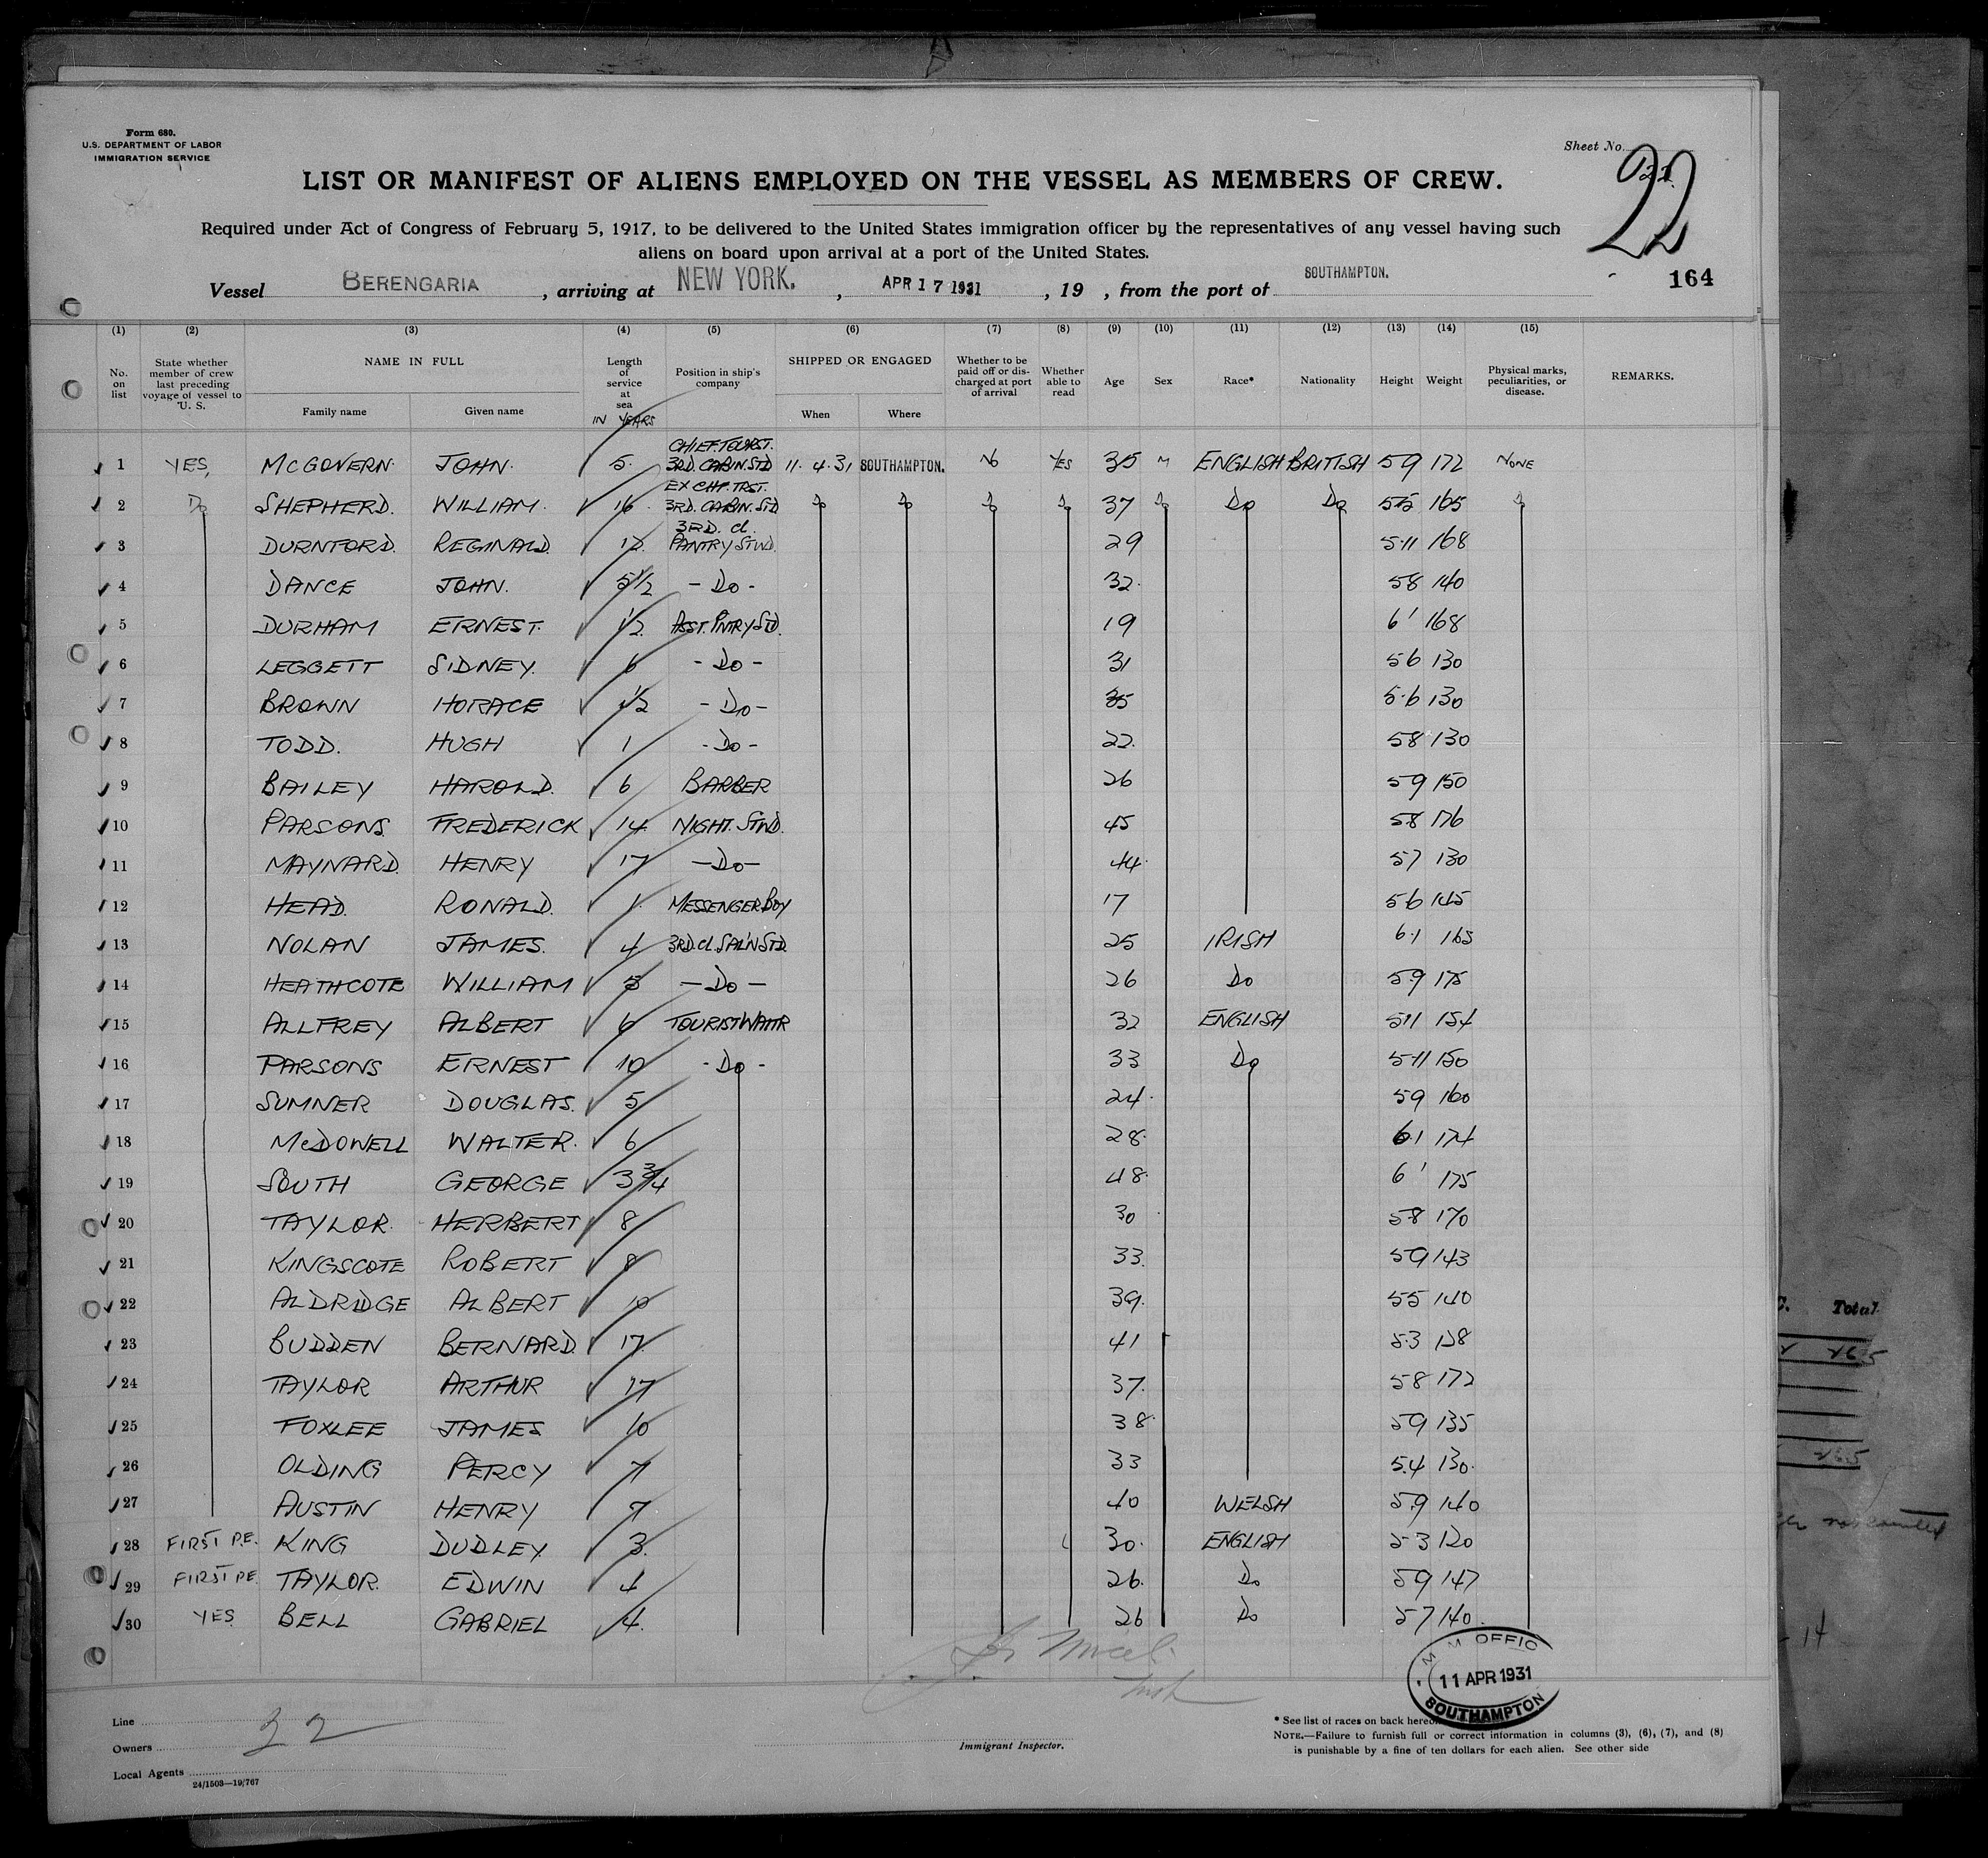 Form 680.
U.S. DEPARTMENT OF LABOR
IMMIGRATION SERVICE
Sheet No.
22
LIST OR MANIFEST OF ALIENS EMPLOYED ON THE VESSEL AS MEMBERS OF CREW.
Required under Act of Congress of February 5, 1917, to be delivered to the United States immigration officer by the representatives of any vessel having such
aliens on board upon arrival at a port of the United States.
Vessel BERENGARIA , arriving at NEW YORK. , APR 17 1931 , 19 , from the port of SOUTHAMPTON.
164
(1) (2) (3) (4) (5) (6) (7) (8) (9) (10) (11) (12) (13) (14) (15)
No. on list State whether member of crew last preceding voyage of vessel to U. S. NAME IN FULL Family name Given name Length of service at sea IN YEARS Position in ship's company SHIPPED OR ENGAGED When Where Whether to be paid off or discharged at port of arrival Whether able to read Age Sex Race* Nationality Height Weight Physical marks, peculiarities, or disease. REMARKS.
1 YES, McGOVERN. JOHN. 5. CHIEF TOURST. 3RD. CABIN. STD 11. 4. 31 SOUTHAMPTON. No YES 35 M ENGLISH BRITISH 59 172 NONE
2 Do SHEPHERD. WILLIAM. 16. EX CHF. TRST. 3RD. CABIN. STD Do Do Do Do 37 Do Do Do 55 165 Do
3 DURNFORD. REGINALD. 12. 3RD. cl. PANTRY STWD. 29 5.11 168
4 DANCE JOHN. 5 1/2 - Do - 32. 58 140
5 DURHAM ERNEST. 1/2 ASST. PNTRY STD. 19 6' 168
6 LEGGETT SIDNEY. 6 - Do - 31 56 130
7 BROWN HORACE 1/2 - Do - 35 5.6 130
8 TODD. HUGH 1 - Do - 22. 58 130
9 BAILEY HAROLD. 6 BARBER 26 59 150
10 PARSONS FREDERICK 14 NIGHT. STWD. 45 58 176
11 MAYNARD. HENRY 17 - Do - 44. 57 130
12 HEAD. RONALD. 1. MESSENGER BOY 17 56 145
13 NOLAN JAMES. 4 3RD. cl. SAL'N STD. 25 IRISH 6.1 165
14 HEATHCOTE WILLIAM 5 - Do - 26 Do 5.9 175
15 ALLFREY ALBERT 6 TOURIST WAITR 32 ENGLISH 5.11 154
16 PARSONS ERNEST 10 - Do - 33 Do 5.11 150
17 SUMNER DOUGLAS. 5 24. 59 160
18 McDOWELL WALTER. 6 28. 6.1 174
19 SOUTH GEORGE 3 3/4 48. 6' 175
20 TAYLOR. HERBERT 8 30 58 170
21 KINGSCOTE ROBERT 8 33. 59 143
22 ALDRIDGE ALBERT 10 39. 55 140
23 BUDDEN BERNARD. 17 41 5.3 128
24 TAYLOR ARTHUR 17 37. 58 172
25 FOXLEE JAMES 10 38. 59 135
26 OLDING PERCY 7 33 5.4 130.
27 AUSTIN HENRY 7 40 WELSH 5.9 140
28 FIRST P.E. KING DUDLEY 3. 30. ENGLISH 5.3 120
29 FIRST P.E. TAYLOR. EDWIN 4 26. Do 59 147
30 YES. BELL GABRIEL 4. 26 Do 57 140.
11 APR 1931
SOUTHAMPTON
Line 32
Owners
Local Agents
24/1503—19/767
Immigrant Inspector.
* See list of races on back hereo
NOTE.—Failure to furnish full or correct information in columns (3), (6), (7), and (8)
is punishable by a fine of ten dollars for each alien. See other side
Total
265
265
14